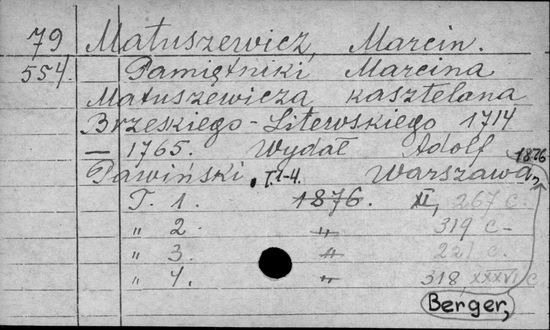 79 Matuszewicz, Marcin.
554. Pamiętniki Marcina
Matuszewicza kasztelana
Brzeskiego-Litewskiego 1714
— 1765. Wydał Adolf
Pawiński. T.1-4. Warszawa, 1876
T. 1. 1876. XI, 267 c.
„ 2. „ 319 c.
„ 3. „ 221 c.
„ 4. „ 318, XXXVI c
Berger,